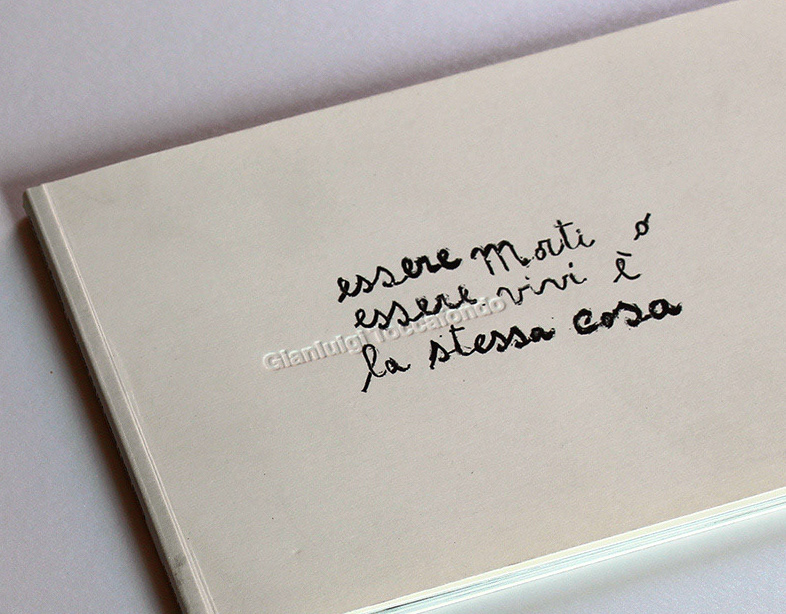 essere morti o
essere vivi è
la stessa cosa
Gianluigi Toccafondo